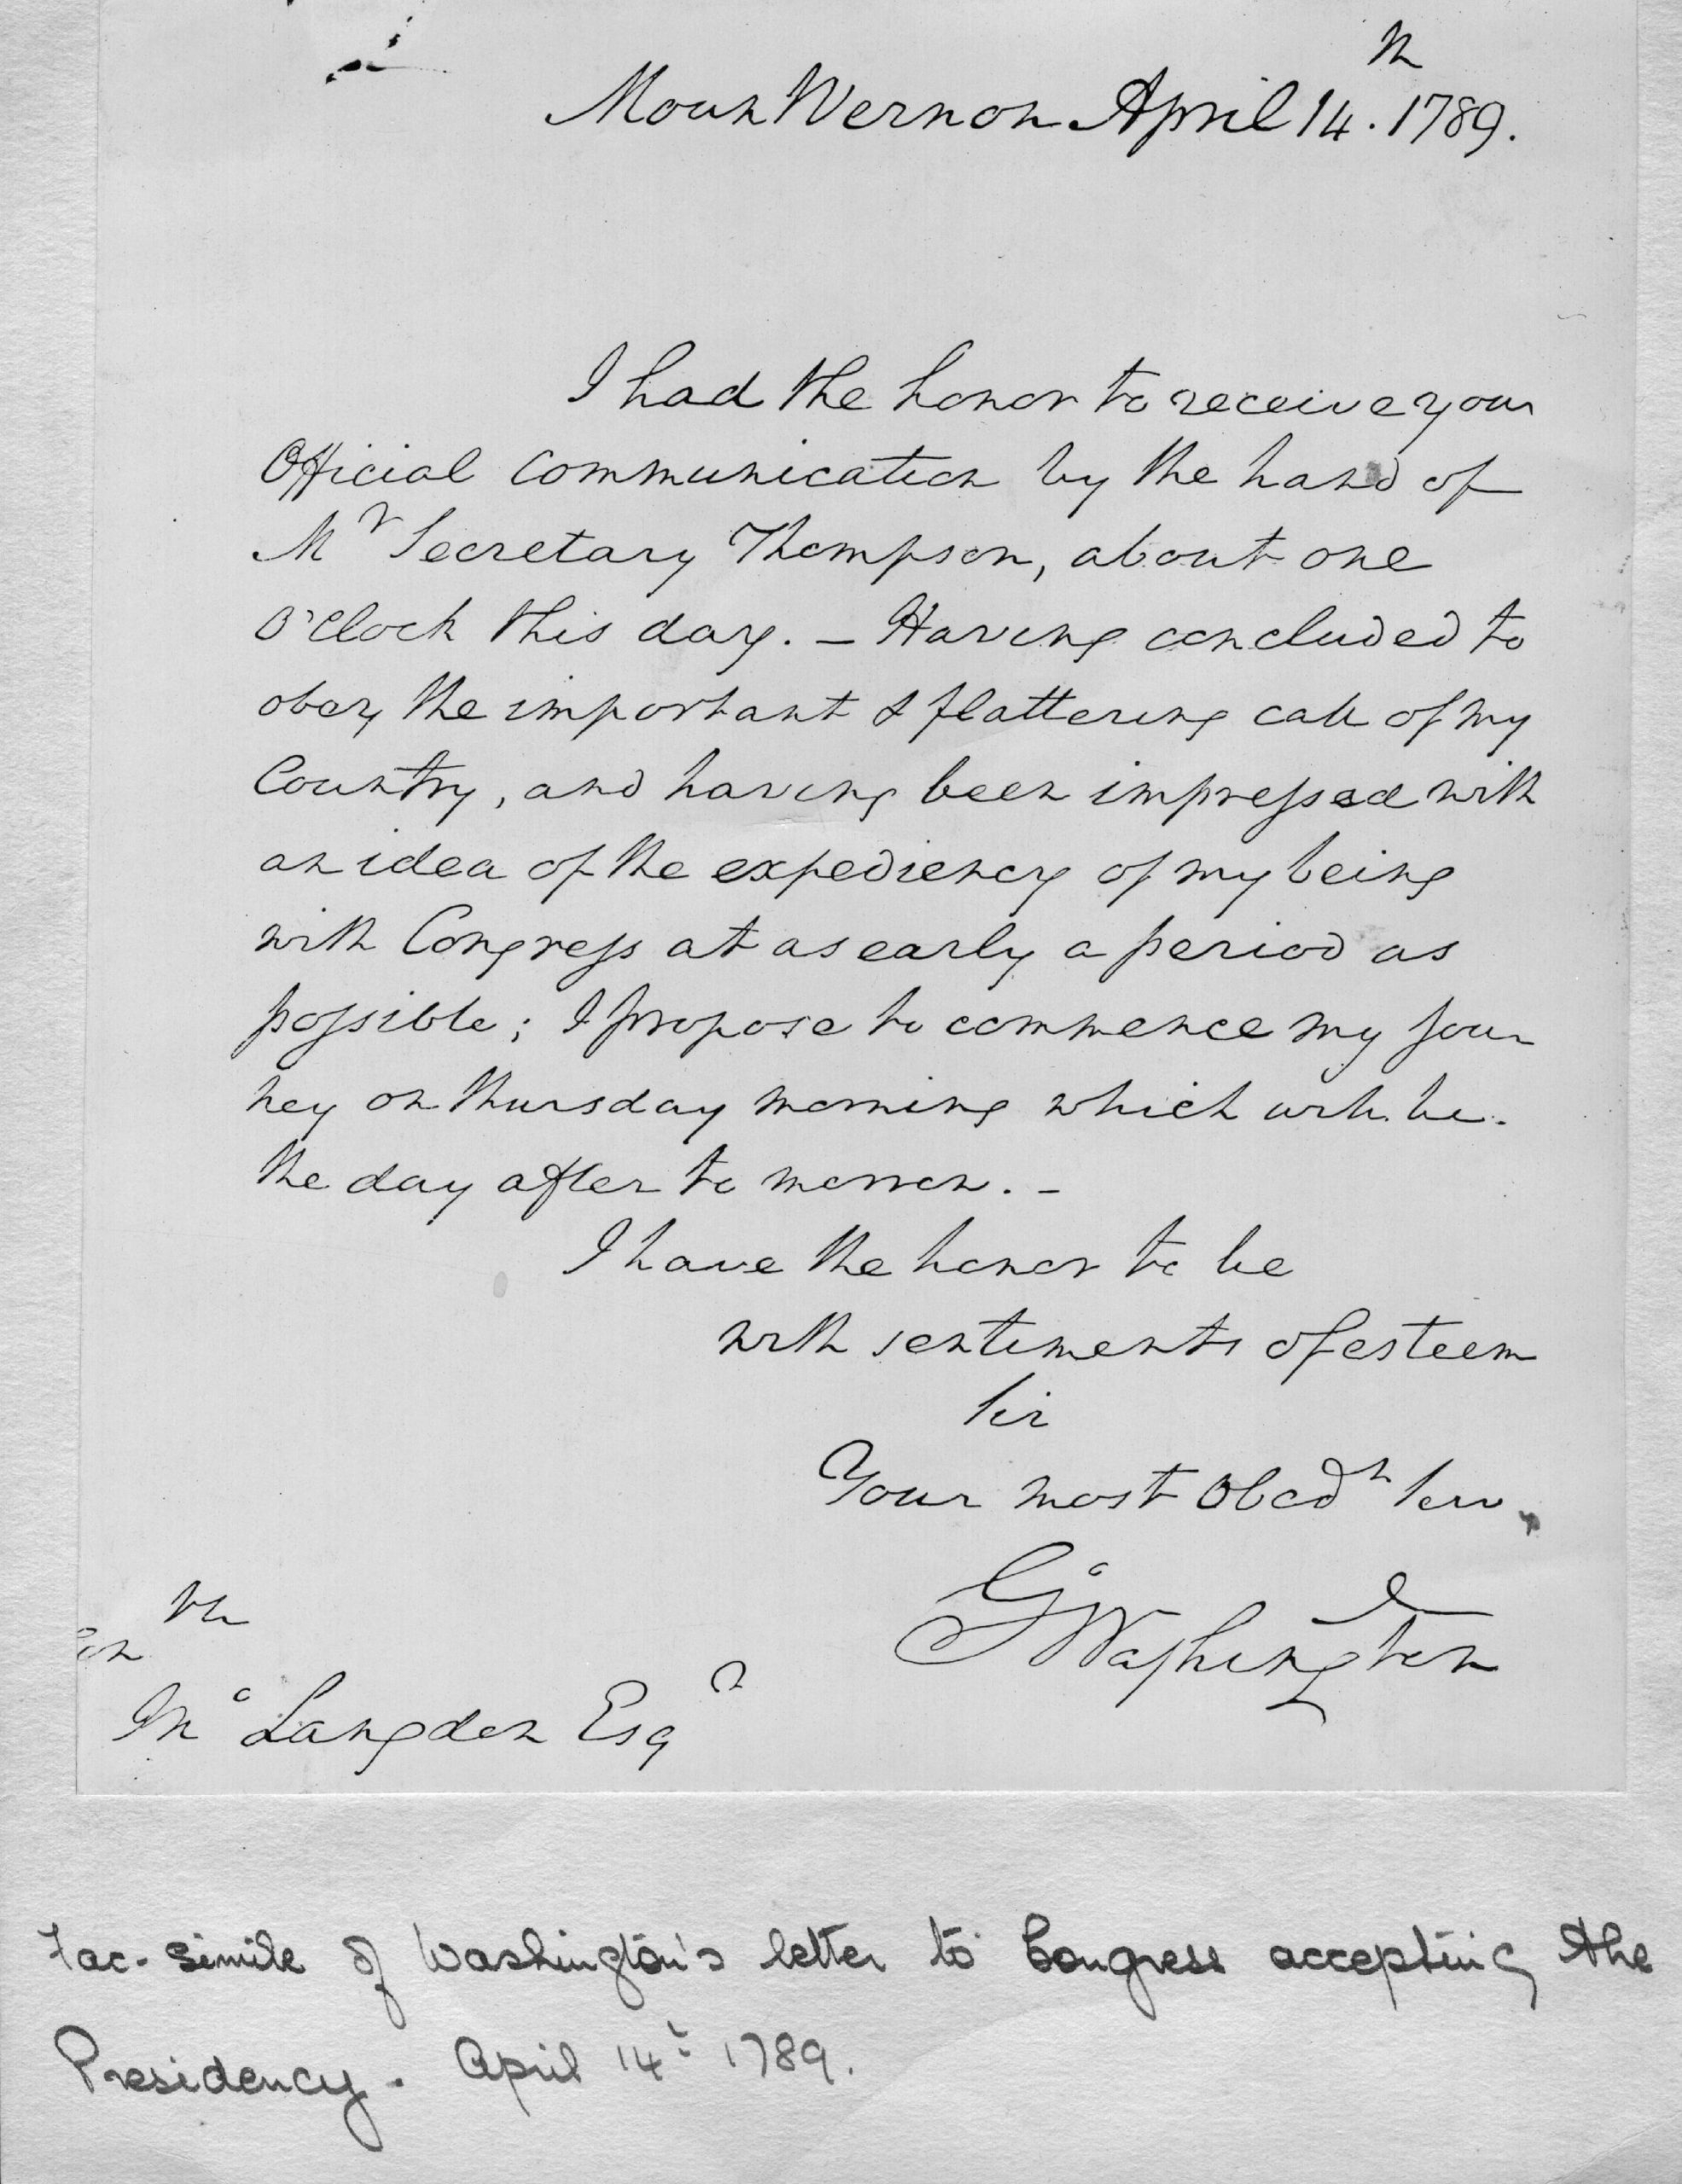 Mount Vernon April 14th. 1789.
I had the honor to receive your
Official Communication by the hand of
Mr Secretary Thompson, about one
O'Clock this day. – Having concluded to
obey the important & flattering call of my
Country, and having been impressed with
an idea of the expediency of my being
with Congress at as early a period as
possible; I propose to commence my jour
ney on thursday morning which will be
the day after to morrow. –
I have the honor to be
with sentiments of esteem
Sir
Your most Obedt Serv
Go Washington
Jno Langdon Esqr
Fac-simile of Washington's letter to Congress accepting the
Presidency. April 14t 1789.